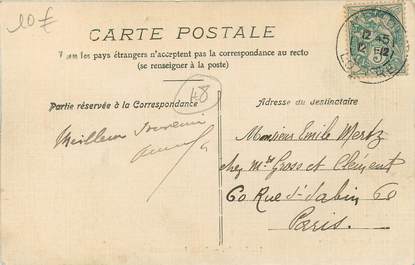 10€
CARTE POSTALE
Tous les pays étrangers n'acceptent pas la correspondance au recto
(se renseigner à la poste)
48
Partie réservée à la Correspondance
Meilleur souvenir
Adresse du Destinataire
Monsieur Emile Mertz
chez Mrs Gross et Clément
60 Rue St Sabin 60
Paris.
12 45
12
12
5